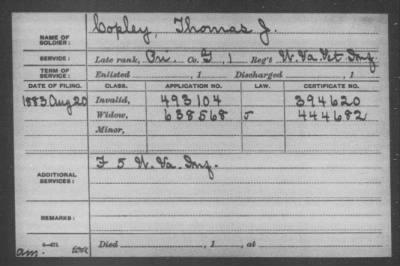 NAME OF SOLDIER: Copley, Thomas J.
SERVICE: Late rank, Pri. Co. G, 1 Reg't W. Va Vet Inf
TERM OF SERVICE: Enlisted , 1 Discharged , 1
DATE OF FILING. CLASS. APPLICATION NO. LAW. CERTIFICATE NO.
1883 Aug 20 Invalid, 493104 394620
Widow, 638568 J 444682
Minor,
ADDITIONAL SERVICES: F 5 W. Va. Inf.
REMARKS:
Died , 1 , at